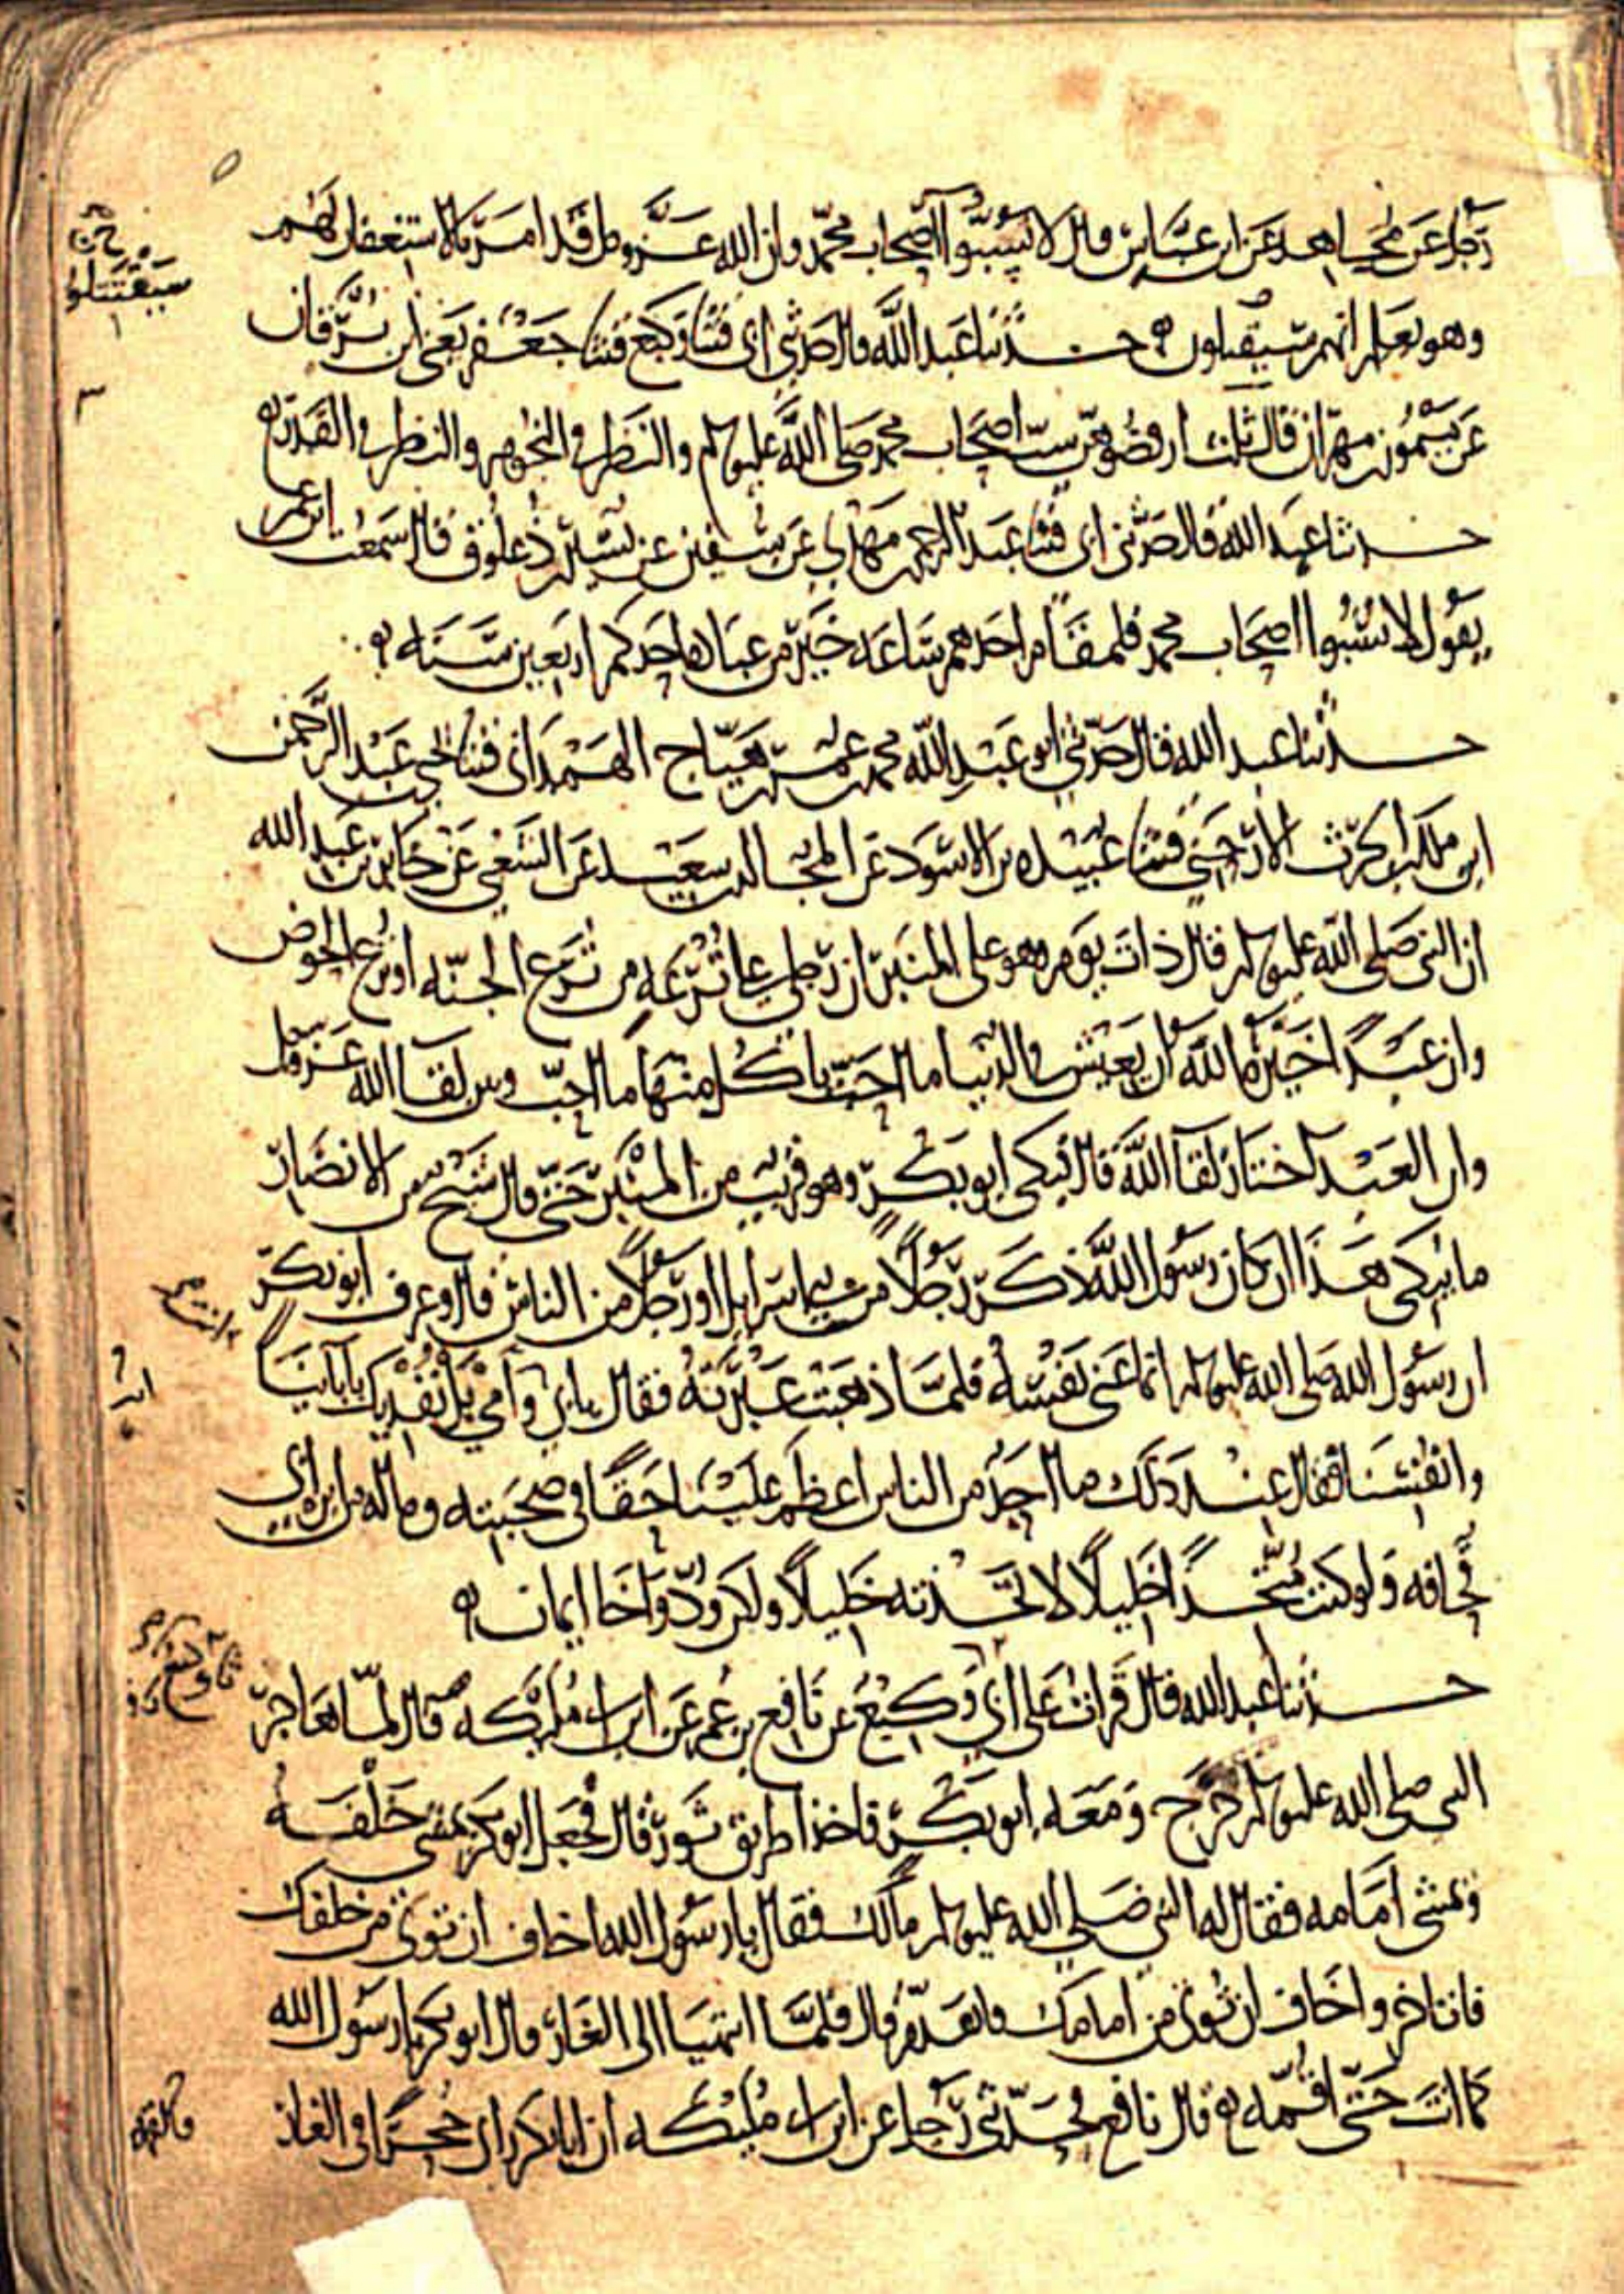 رجل عن مجاهد عن ابن عباس قال لا تسبوا اصحاب محمد وان الله عز وجل قد امر بالاستغفار لهم
وهو يعلم انهم سيقتلون حدثنا عبد الله قال حدثني ابي قثنا وكيع قثنا جعفر يعني ابن برقان
عن ميمون بن مهران قال ثلث ارفضوهن سب اصحاب محمد صلى الله عليه وسلم والنظر في النجوم والنظر في القدر
حدثنا عبد الله قال حدثني ابي قثنا عبد الرحمن بن مهدي عن سفين عن نسير بن ذعلوق قال سمعت ابن عمر
يقول لا تسبوا اصحاب محمد فلمقام احدهم ساعه خير من عباده احدكم اربعين سنه
حدثنا عبد الله قال حدثني ابو عبد الله محمد بن عمر بن هياج الهمداني قثنا يحيى بن عبد الرحمن
ابن ملك بن الحرث الارحبي قثنا عبيده بن الاسود عن المجالد بن سعيد عن الشعبي عن جابر بن عبد الله
ان النبي صلى الله عليه وسلم قال ذات يوم وهو على المنبر ان رجلي على ترعه من ترع الجنه او ترع الحوض
وان عبدا خيره الله ان يعيش في الدنيا ما احب ياكل منها ما احب وبين لقا الله عز وجل
وان العبد اختار لقا الله قال فبكى ابو بكر وهو قريب من المنبر حتى قال شيخ من الانصار
ما يبكي هذا ان كان رسول الله ذكر رجلا من بني اسرايل او رجلا من الناس قال وعرف ابو بكر
ان رسول الله صلى الله عليه وسلم انما عنى نفسه فلما ذهبت عبرته فقال بابي وامي بل نفديك بابائنا
وانفسنا فقال عند ذلك ما احد من الناس اعظم علينا حقا في صحبته وماله من ابن ابي
قحافه ولو كنت متخذا خليلا لاتخذته خليلا ولكن ود واخا ايمان
حدثنا عبد الله قال قرات على ابي وكيع عن نافع بن عمر عن ابن ابي مليكه قال لما هاجر
النبي صلى الله عليه وسلم خرج ومعه ابو بكر فاخذا طريق ثور قال فجعل ابو بكر يمشي خلفه
ويمشي امامه فقال له النبي صلى الله عليه وسلم ما لك فقال يا رسول الله اخاف ان توتى من خلفك
فاتاخر واخاف ان توتى من امامك فاتقدم قال فلما انتهيا الى الغار قال ابو بكر يا رسول الله
كما انت حتى اقمه قال نافع فحدثني رجل عن ابن ابي مليكه ان ابا بكر راى جحرا في الغار
سيقتتلون
فالقمه